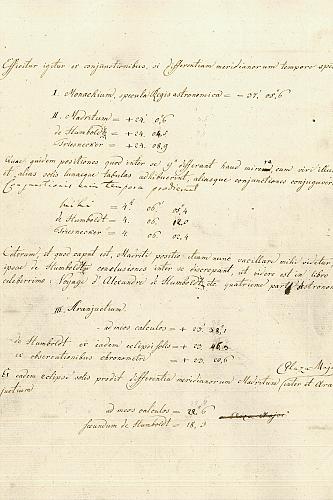 Efficitur igitur ex conjunctionibus, si differentiam meridianorum tempore
I. Monachium, specula Regis astronomica = - 37' 05"6
II. Madritum = + 24' 0"6
de Humboldt = + 24.
Triesnecker = + 24 08,9
quidem positiones quod inter se differant haud mirum, cum viri illi
et alias solis lunaeque tabulas adhibuerint, aliasque conjunctiones
Conjunctionis enim tempora prodierunt
mihi = 4h 06' 08"4
de Humboldt = 4. 06 12.0
Triesnecker = 4 06 02.4
Ceterum, et quod caput est, Madriti positio etiam nunc vacillari mihi videtur
ipsae de Humboldtii conclusiones inter se discrepant, ut videre est in libro
celeberrimo: Voyage d'Alexandre de Humboldt, quatrieme partie
III. Aranjuetum
ad meos calculos = + 23'
de Humboldt ex eadem eclipsi solis = + 23
ex observationibus chronometri = + 23.
Plaza
Ex eadem eclipsi solis prodit differentia meridianorum Madritum inter et
ad meos calculos = 6
secundum de Humboldt = 18,